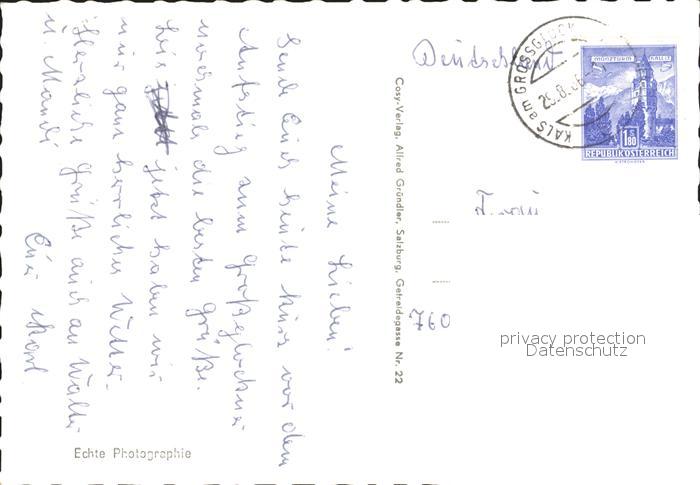 Meine Lieben!
Sende Euch heute kurz vor dem
Aufstieg zum Großglockner
nochmals die besten Grüße.
Bis jetzt haben wir
nur ganz herrliches Wetter.
Herzliche Grüße auch an Walter
u. Mandi
Euer Karl
Echte Photographie
Cosy-Verlag, Alfred Gründler, Salzburg, Getreidegasse Nr. 22
Deutschland
KALS am GROSSGLOCK
MÜNZTURM HALL i.T.
S 1.80
REPUBLIK ÖSTERREICH
Frau
760
privacy protection
Datenschutz